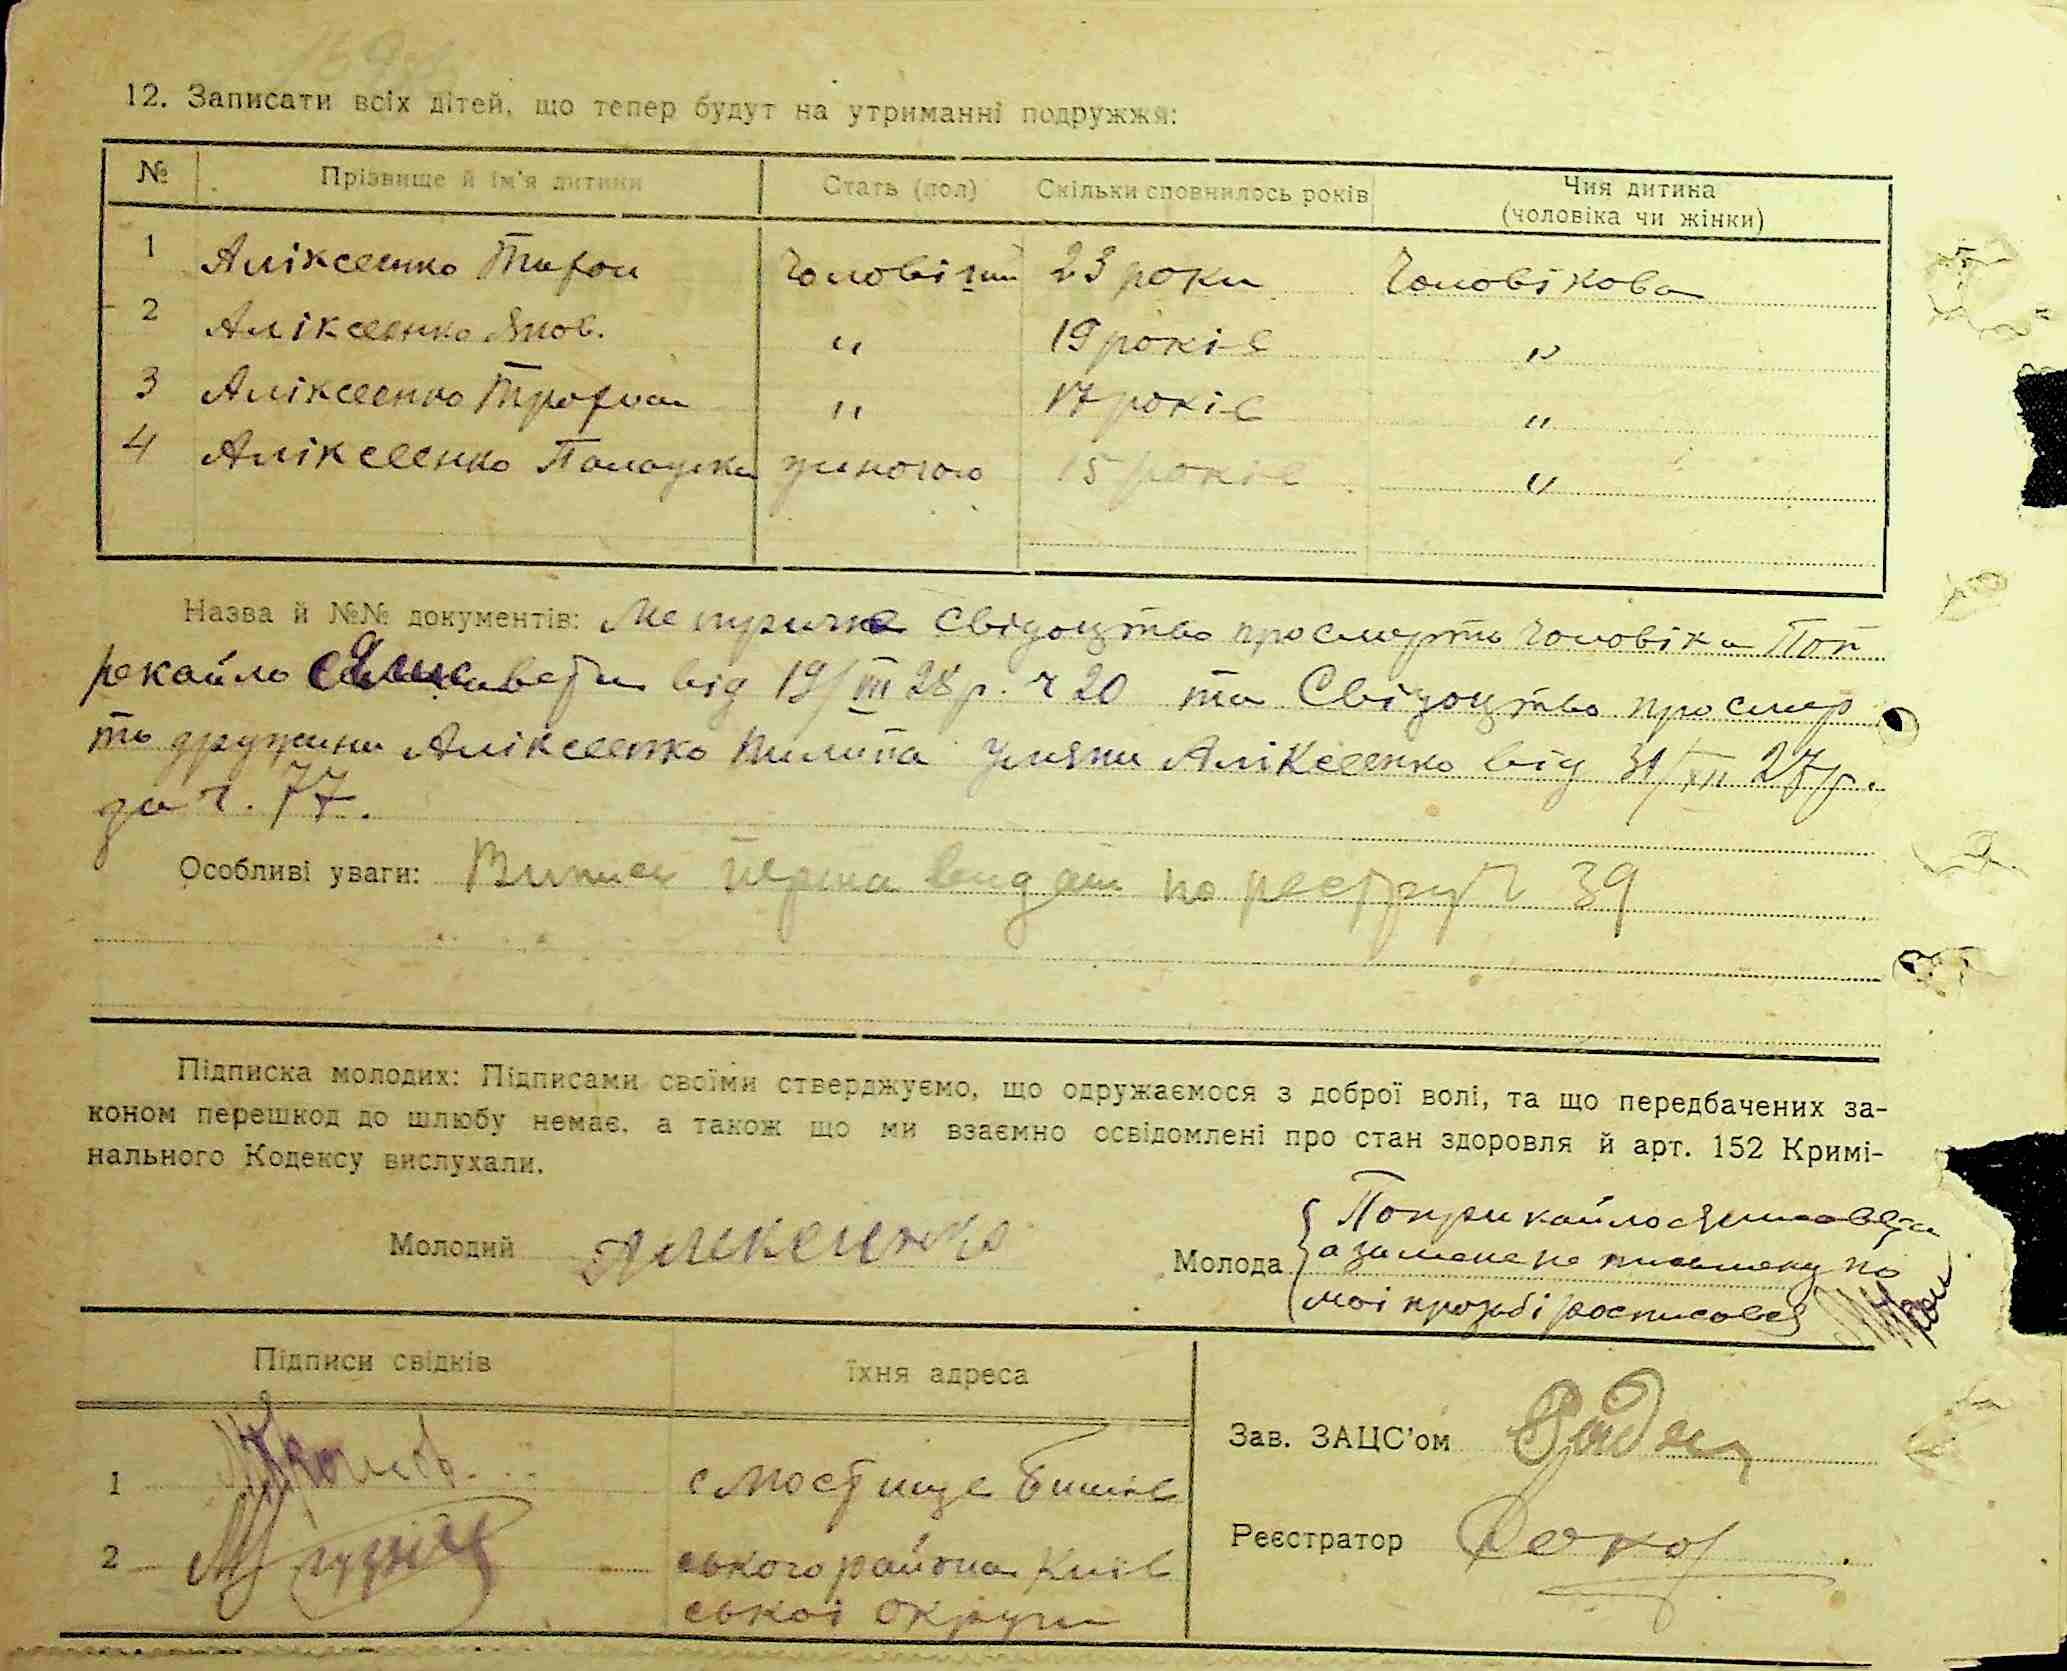 12. Записати всіх дітей, що тепер будут на утриманні подружжя:
№ Прізвище й ім'я дитини Стать (пол) Скільки сповнилось років Чия дитина
(чоловіка чи жінки)
1 Аліксеенко Тифон Чоловічий 23 роки Чоловікова
2 Аліксеенко Яков. " 19 років "
3 Аліксеенко Трофим " 17 років "
4 Аліксеенко Палажка 15 років "
Назва й №№ документів: Метричне свідоцтво про смерть чоловіка Поп
рекайло від 19/III 28 р. ч 20 та Свідоцтво про смер
ть дружини Аліксеенко Пилипа Уляни Аліксеенко від 31/XII 27 р.
за ч. 77.
Особливі уваги: Випись перша видана по реєстру ч 39
Підписка молодих: Підписами своїми стверджуємо, що одружаємося з доброї волі, та що передбачених за-
коном перешкод до шлюбу немає, а також що ми взаємно освідомлені про стан здоровля й арт. 152 Кримі-
нального Кодексу вислухали.
Молодий Аликсеенко
Молода Поприкайло
а за мене не письмену по
моі прозьбі росписався
Підписи свідків їхня адреса
Зав. ЗАЦС'ом
1 с Мостище Бишів
Реєстратор
2 ського района Київ
ськоі округи